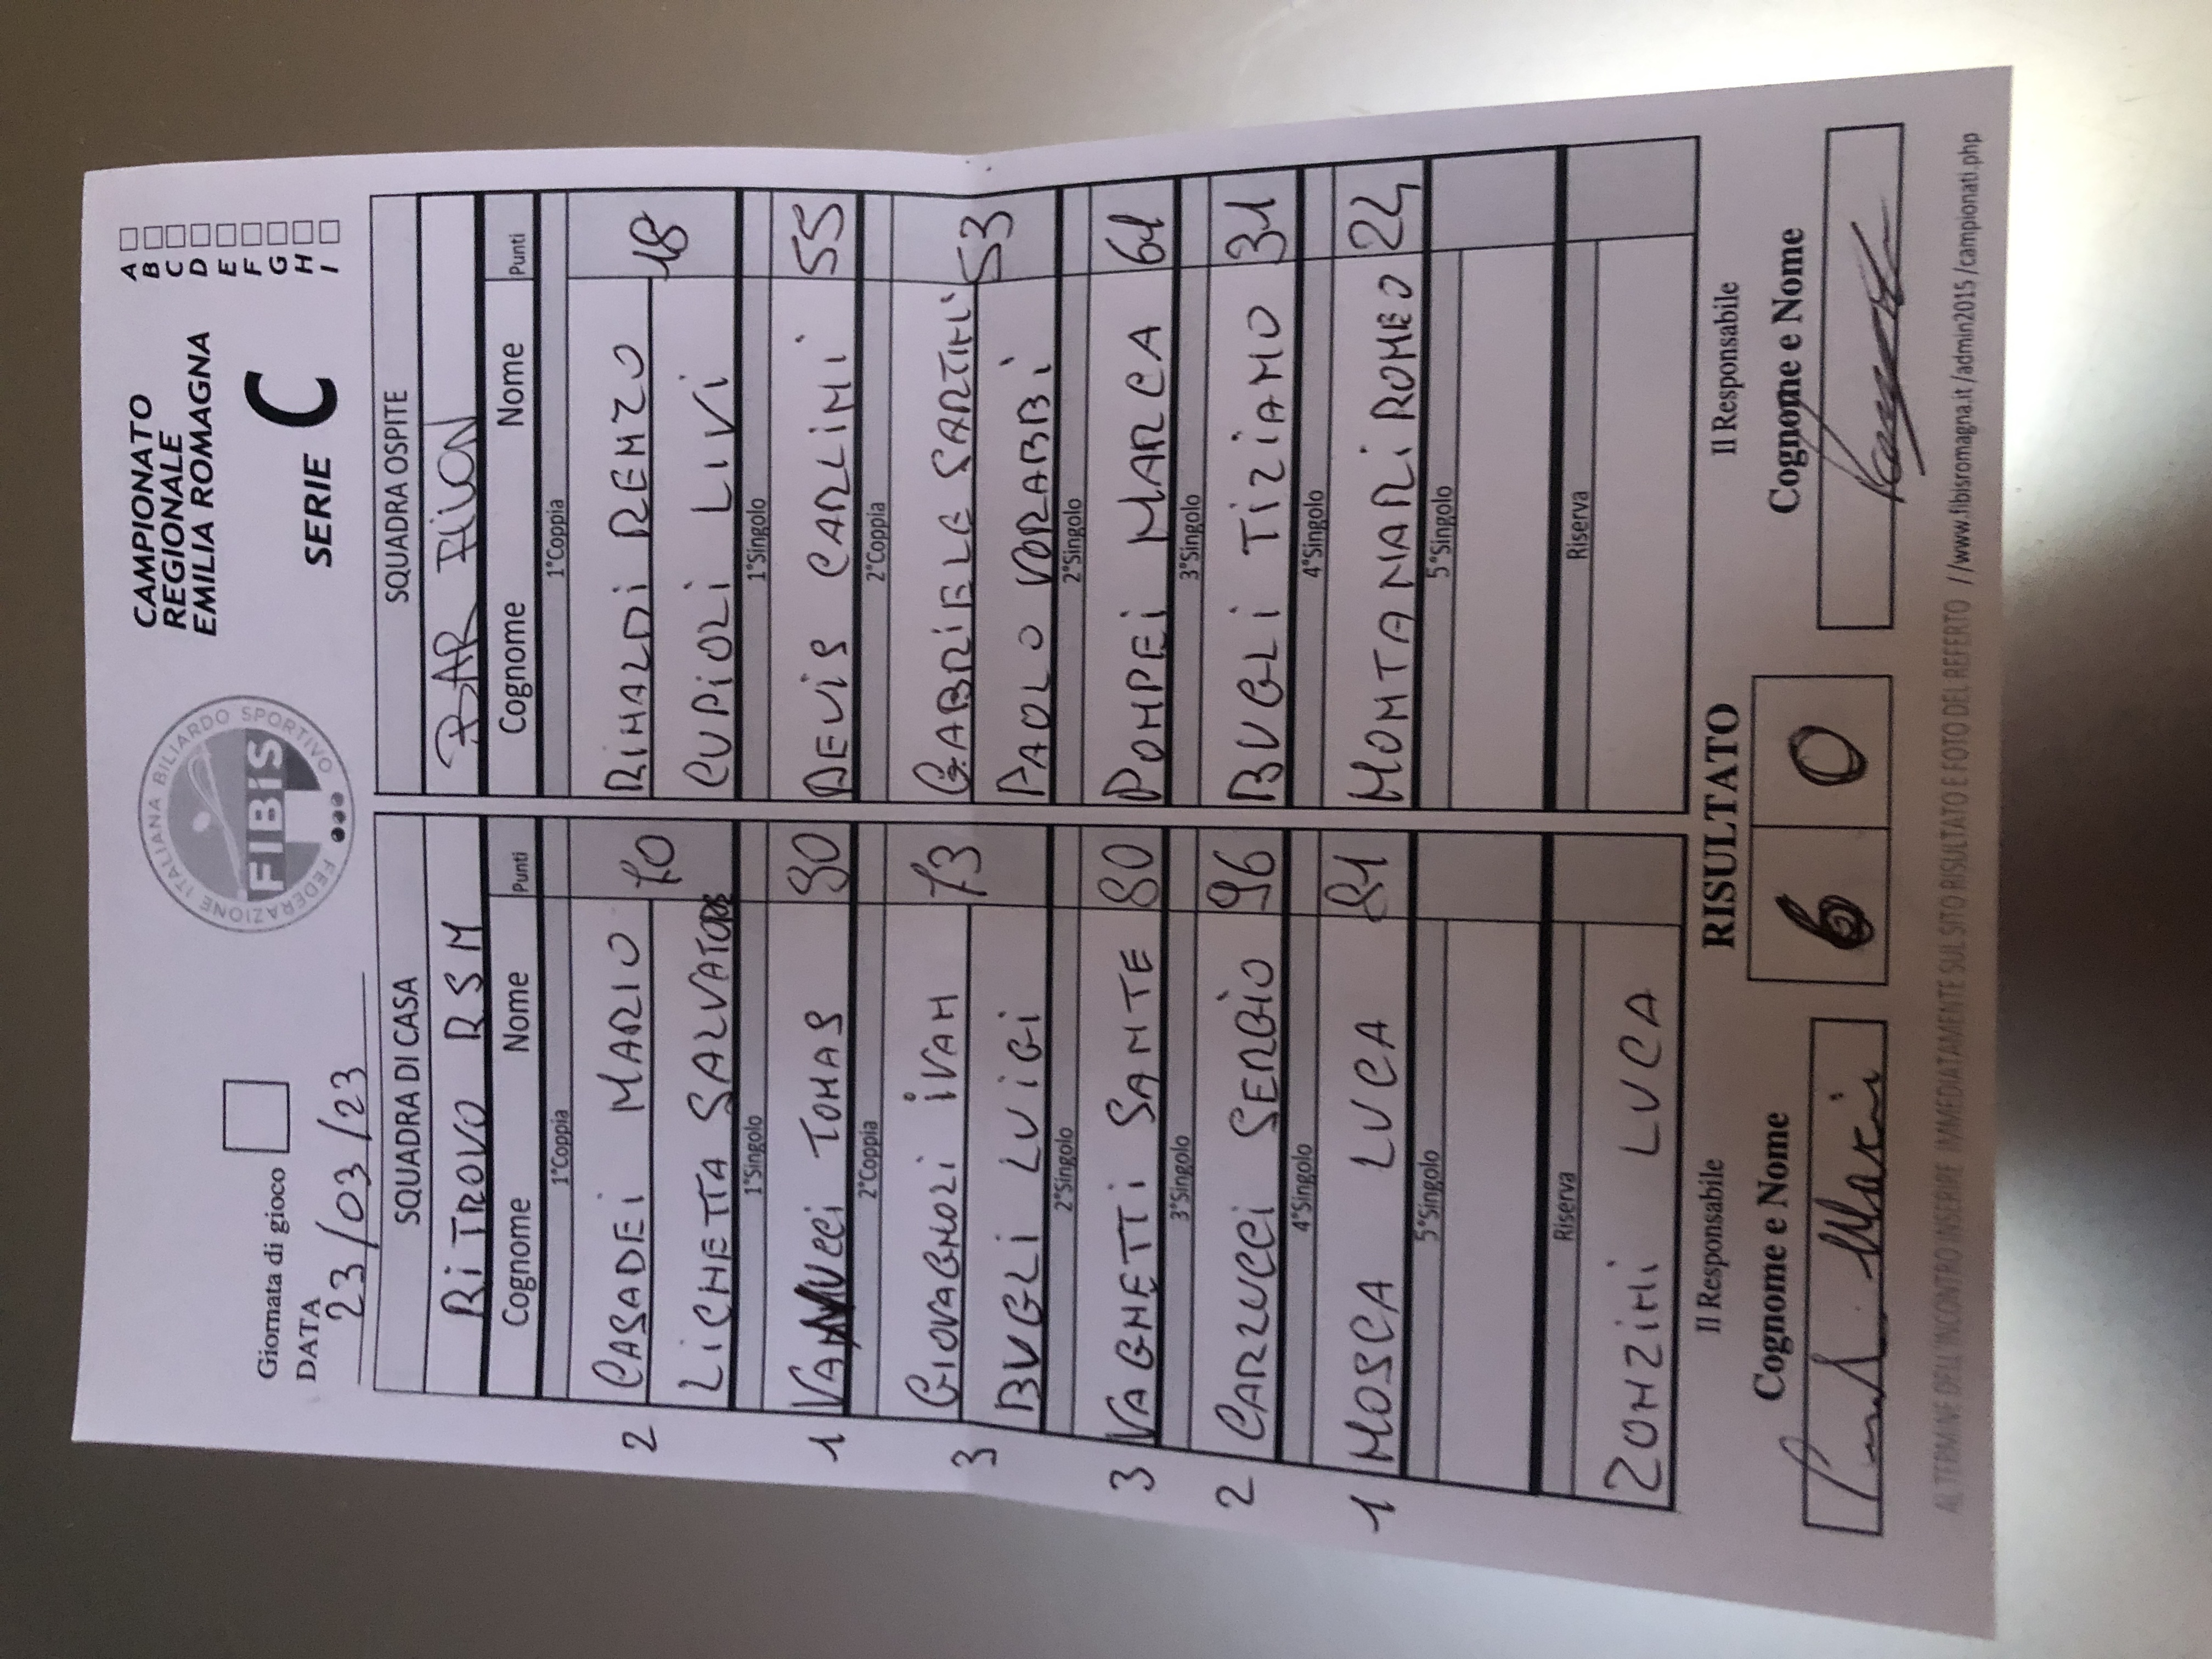 Giornata di gioco
DATA
23/03/23
FEDERAZIONE ITALIANA BILIARDO SPORTIVO
FIBIS
CAMPIONATO
REGIONALE
EMILIA ROMAGNA
SERIE C
A
B
C
D
E
F
G
H
I
SQUADRA DI CASA SQUADRA OSPITE
RITROVO RSM BAR
Cognome Nome Punti Cognome Nome Punti
1°Coppia 1°Coppia
2 CASADEI MARIO 70 RINALDI RENZO 18
LICHETTA SALVATORE CUPIOLI LIVI
1°Singolo 1°Singolo
1 VANNUCCI TOMAS 90 DEVIS CARLINI 55
2°Coppia 2°Coppia
3 GIOVAGNOLI IVAN 73 GABRIELE SARTINI 53
BUGLI LUIGI PAOLO
2°Singolo 2°Singolo
3 VAGNETTI SANTE 80 POMPEI MARCA 61
3°Singolo 3°Singolo
2 CARZUCCI SERGIO 96 BUGLI TIZIANO 31
4°Singolo 4°Singolo
1 MOSCA LUCA 81 MONTANARI ROMEO 24
5°Singolo 5°Singolo
Riserva Riserva
ZONZINI LUCA
Il Responsabile RISULTATO Il Responsabile
Cognome e Nome 6 0 Cognome e Nome
AL TERMINE DELL'INCONTRO INSERIRE IMMEDIATAMENTE SUL SITO RISULTATO E FOTO DEL REFERTO //www.fibisromagna.it/admin2015/campionati.php